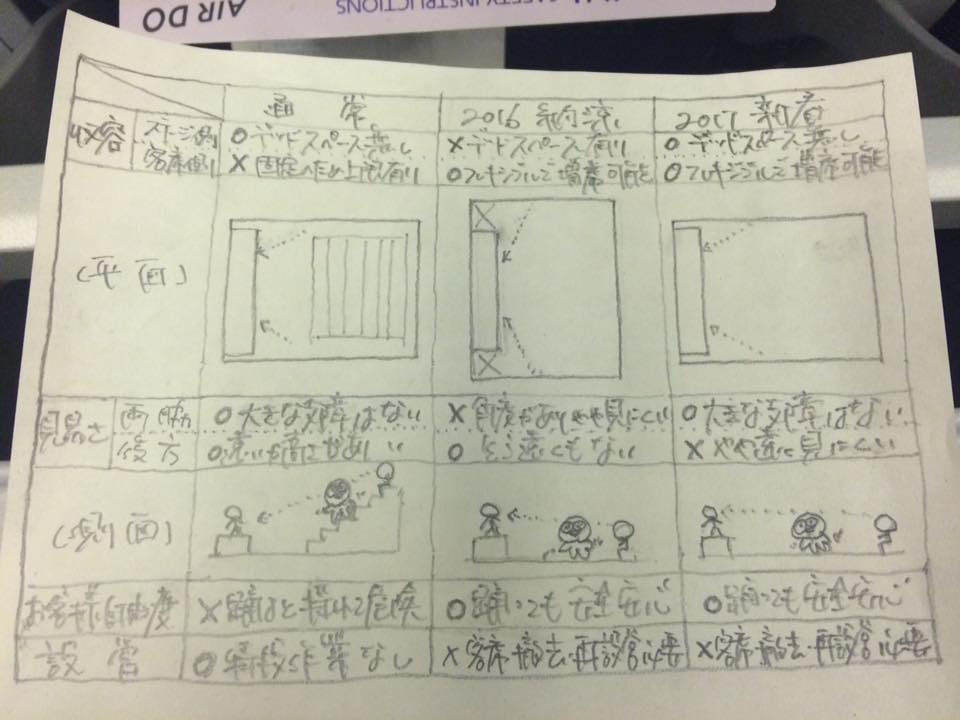 SAFETY INSTRUCTIONS
AIR DO
通常
2016 納涼
2017 新春
収容
ステージ側
○デッドスペース無し
×デッドスペース有り
○デッドスペース無し
客席側
×固定のため上限有り
○フレキシブルで増席可能
○フレキシブルで増席可能
(平面)
見易さ
両脇
○大きな支障はない
×角度がありやや見にくい
○大きな支障はない
後方
○遠いが高にあり
○そう遠くもない
×やや遠く見にくい
(側面)
お客様自由度
×踊ると揺れて危険
○踊っても安全安心
○踊っても安全安心
設営
○特段作業なし
×客席撤去・再設営必要
×客席撤去・再設営必要